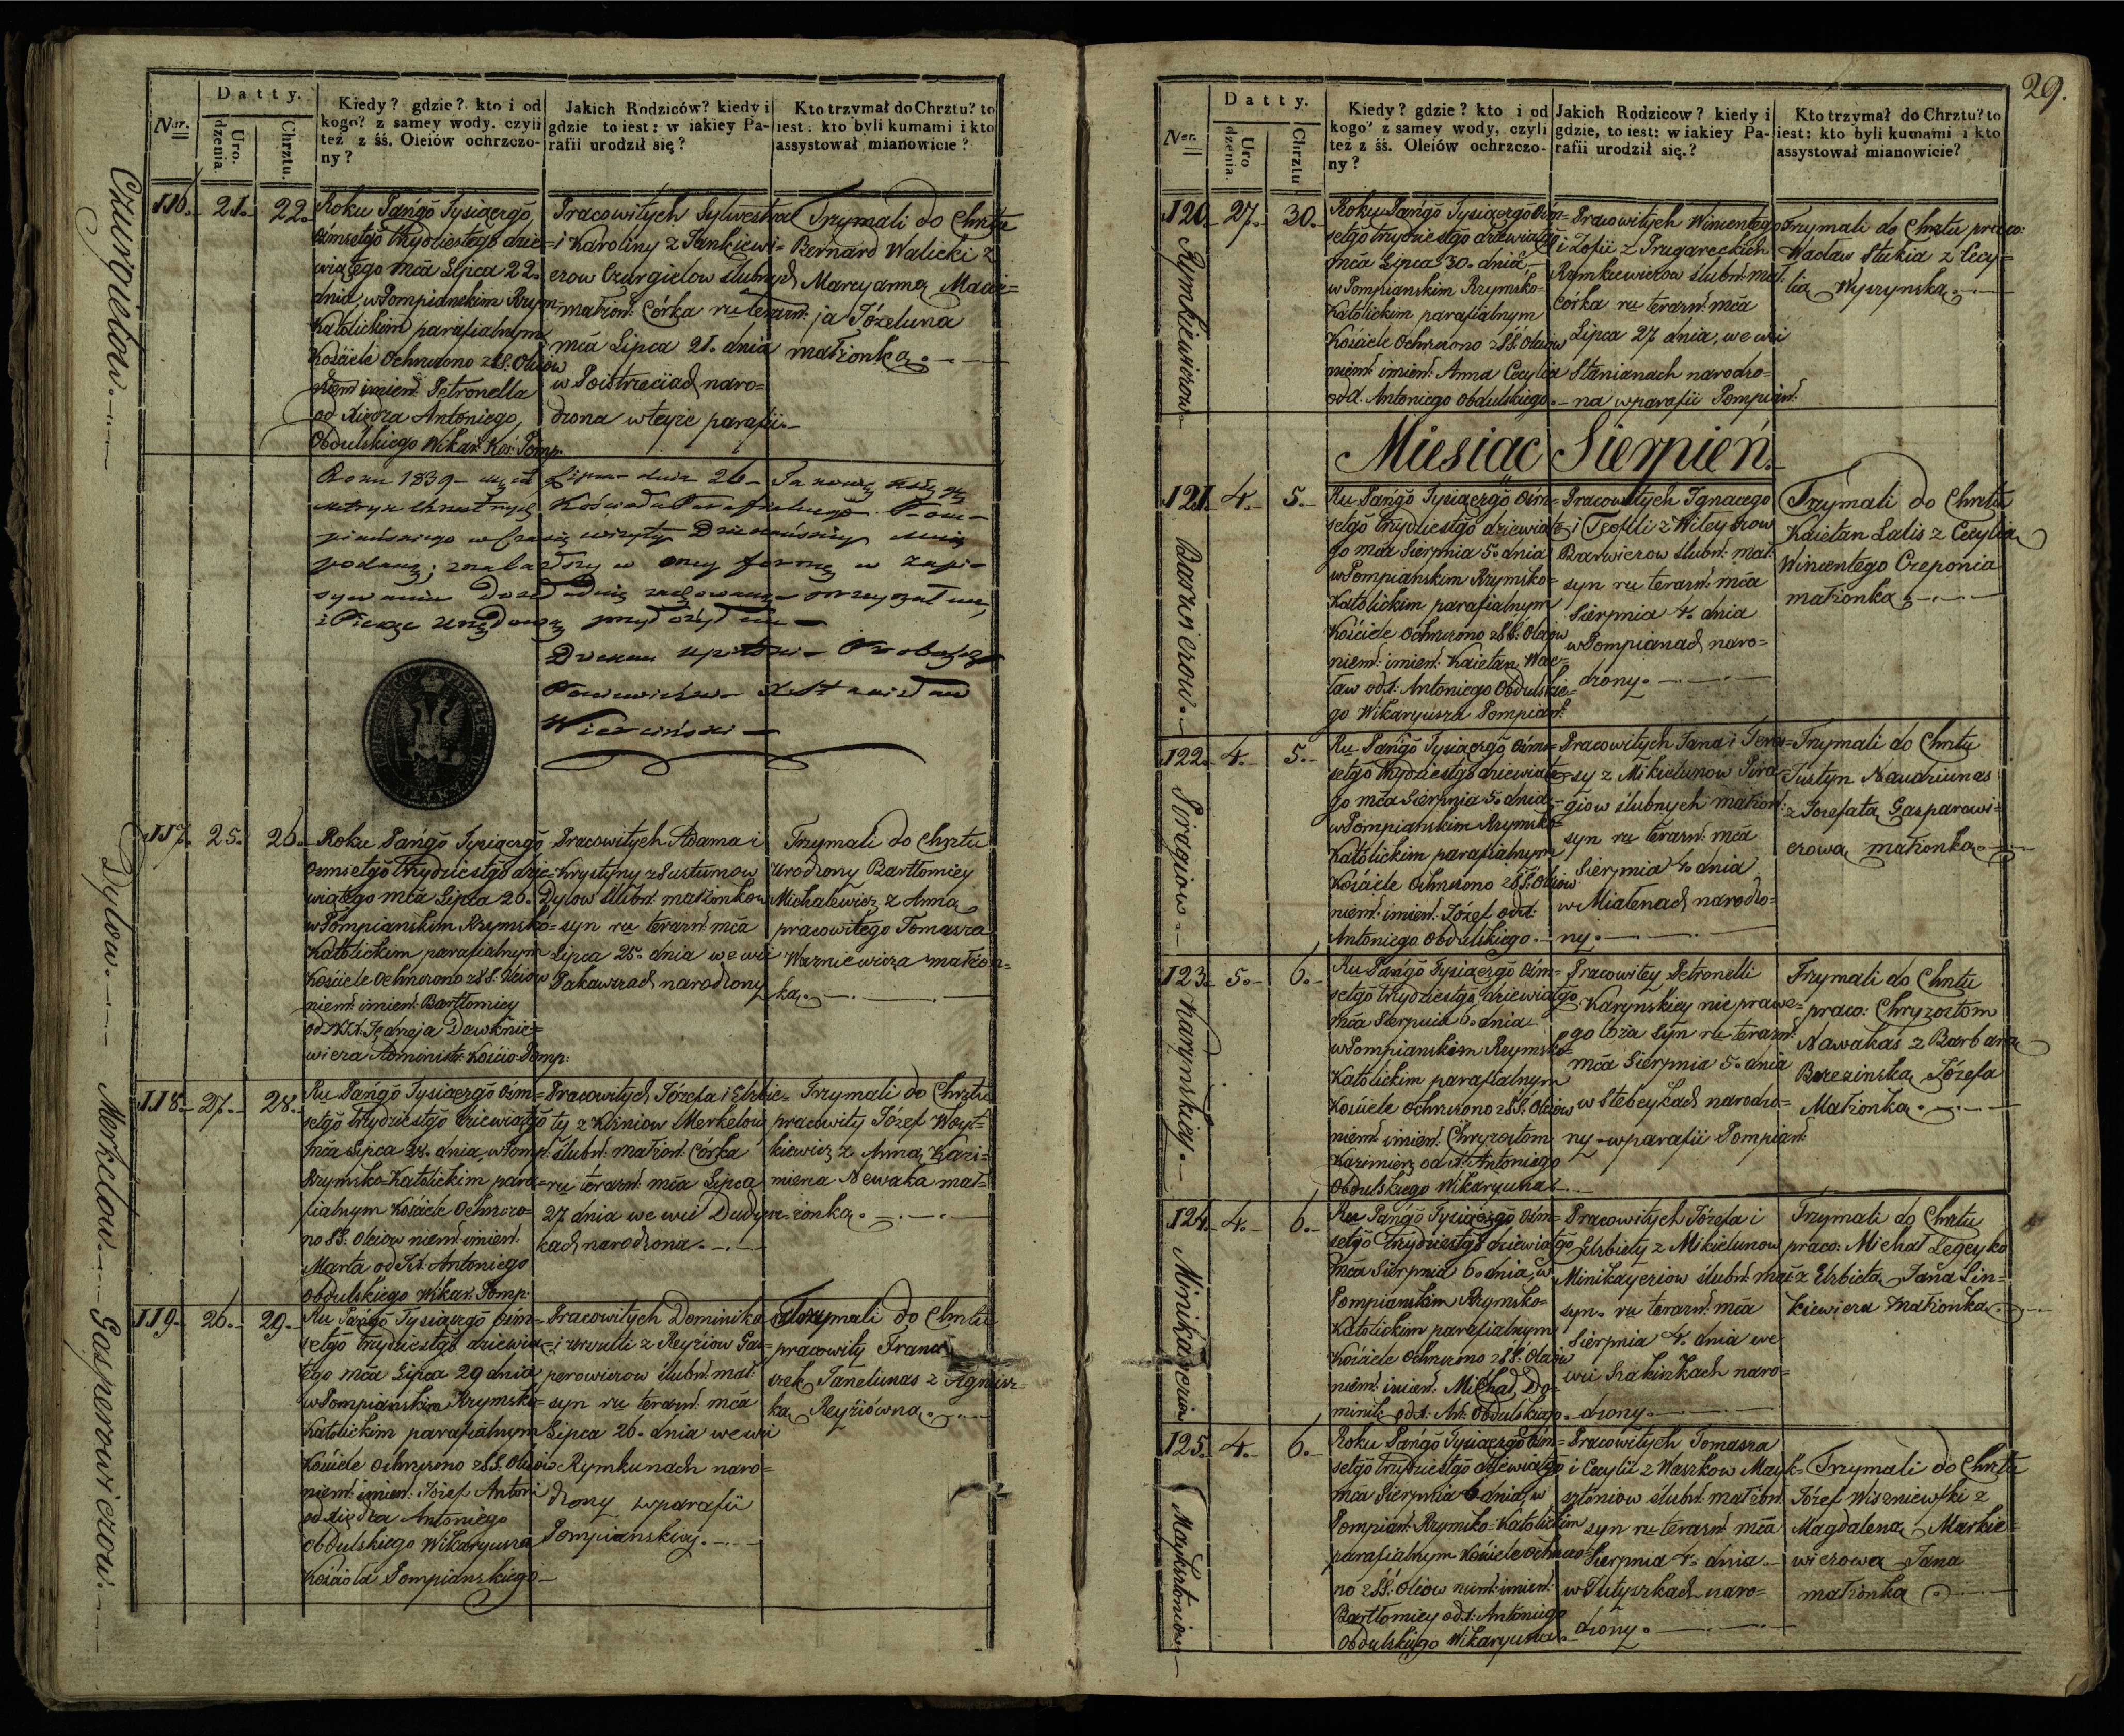 Datty.
Ner.
Uro.
dzenia.
Chrztu.
Kiedy? gdzie? kto i od
kogo? z samey wody, czyli
też z śś. Oleiów ochrzczo-
ny?
Jakich Rodziców? kiedy i
gdzie to iest: w iakiey Pa-
rafii urodził się?
Kto trzymał do Chrztu? to
iest: kto byli kumami i kto
assystował mianowicie?
Czurgielow.
116. 21. 22.
Roku Pańgo Tysiącgo
ośmsetgo trzydziestego dzie-
wiątego mca Lipca 22.
dnia, w Pompianskim Rzym-
Katolickim parafialnym
Kościele Ochrzczono z SS. Oleiow
imien. Petronella
od Xiędza Antoniego
Obdulskiego Wikar. Koś. Pomp.
Pracowitych Sylwestra
i Karoliny z Jankiewi-
czow Czurgielow ślubnych
małżon. Córka ru terazn.
mca Lipca 21. dnia
w Poistreciach naro-
dzona w teyże parafii.
Trzymali do Chrztu
Bernard Walicki z
Marcyanną Macie-
ja Józeluna
małżonką.
Roku 1839
Lipca dnia 26
Kościoła Parafialnego Pom-
piańskiego w czasie wizyty Dziekańskiey
podaną; znalazłszy w oney formę w zapi-
sywaniu
Dziekan Upitski Proboszcz
Poniewiezki
117. 25. 26.
Dylow.
Roku Pańgo Tysiącgo
Osmsetgo Trzydziestgo dzie-
wiątego mca Lipca 26.
w Pompianskim Rzymsko-
Katolickim parafialnym
Kościele Ochrzczono z SS. Oleiow
niem. imien. Bartłomiey
od JX. Jędrzeja Dawknie-
wicza Administr. Kościo. Pomp:
Pracowitych Adama i
Krystyny z Sustumow
Dylow Slubn. małżonkow
syn ru terazn. mca
Lipca 25. dnia we wsi
Pakawszach narodzony
Trzymali do Chrztu
Urodzony Bartłomiey
Michalewicz z Anną
pracowitego Tomasza
Wazniewicza małżon-
ką.
118. 27. 28.
Merkelow.
Ru Pańgo Tysiącgo Ośm-
setgo Trzydziestgo dziewiątgo
mca Lipca 28. dnia, w Pomp:
Rzymsko-Katolickim para-
fialnym Kościele Ochrzczo-
no z SS. Oleiow niem. imien.
Marta od JX. Antoniego
Obdulskiego Wikar. Pomp.
Pracowitych Józefa i Elzbie-
ty z Merkelow
ślubn. małżon. Córka
ru terazn. mca Lipca
27 dnia we wsi Dudysz-
kach narodzona.
Trzymali do Chrztu
pracowity Józef Woyt-
kiewicz z Anną Kazi-
mierza Newaka mał-
żonką.
119. 26. 29.
Gasperowiczow.
Ru Pańgo Tysiącgo Ośm-
setgo trzydziestgo dziewią-
tego mca Lipca 29 dnia
w Pompianskim Rzymsko-
Katolickim parafialnym
Kościele Ochrzczono z SS. Oleiow
niem. imien. Józef Antoni
od Xiędza Antoniego
Obdulskiego Wikaryusza
Kościoła Pompianskiego
Pracowitych Dominika
i Urszuli z Reyziow Gas-
perowiczow ślubn. mał:
syn ru terazn. mca
Lipca 26. dnia we wsi
Rymkunach naro-
dzony w parafii
Pompianskiey.
Trzymali do Chrztu
pracowity Franci-
szek Tanelunas z Agniesz-
ką Reyziówną.
29.
Datty.
Ner.
Uro
dzenia.
Chrztu
Kiedy? gdzie? kto i od
kogo? z samey wody, czyli
też z śś. Oleiów ochrzczo-
ny?
Jakich Rodzicow? kiedy i
gdzie, to iest: w iakiey Pa-
rafii urodził się.?
Kto trzymał do Chrztu? to
iest: kto byli kumami i kto
assystował mianowicie?
120. 27. 30.
Rymkiewiczow
Roku Pańgo Tysiącgo Ośm-
setgo trzydziestgo dziewiątgo
mca Lipca 30. dnia
w Pompianskim Rzymsko-
Katolickim parafialnym
Kościele Ochrzczono z SS. Oleiow
niem. imien. Anna Cecylia
od X. Antoniego Obdulskiego.
Pracowitych Wincentego
i Zofii z Prugareckich
Rymkiewiczow ślubn. mał:
Córka ru terazn. mca
Lipca 27 dnia, we wsi
Stanianach narodzo-
na w parafii Pompian.
Trzymali do Chrztu praco:
Wacław Stukia z Cecy-
lią Wyszynską.
Miesiąc Sierpień.
121. 4. 5.
Barwiczow.
Ru Pańgo Tysiącgo Ośm-
setgo trzydziestgo dziewiąte-
go mca Sierpnia 5. dnia
w Pompianskim Rzymsko-
Katolickim parafialnym
Kościele Ochrzczono z SS. Oleiow
niem. imien. Kaietan Wac-
ław od X. Antoniego Obdulskie-
go Wikaryusza Pompian.
Pracowitych Ignacego
i Teofili z Wileyszow
Barwiczow ślubn. mał:
syn ru terazn. mca
Sierpnia 4. dnia
w Pompianach naro-
dzony.
Trzymali do Chrztu
Kaietan Latis z Cecylią
Wincentego Czeponia
małżonką
122. 4. 5.
Piragiow.
Ru Pańgo Tysiącgo Ośm-
setgo trzydziestgo dziewiąte-
go mca Sierpnia 5. dnia
w Pompianskim Rzymsko-
Katolickim parafialnym
Kościele Ochrzczono z SS. Oleiow
niem. imien. Józef od X.
Antoniego Obdulskiego.
Pracowitych Jana i Tere-
sy z Mikielunow Pira-
giow ślubnych małżon:
syn ru terazn. mca
Sierpnia 4. dnia
w Miałenach narodzo-
ny.
Trzymali do Chrztu
Justyn Naudziunas
z Jozefatą Gasparowi-
czową małżonką.
123. 5. 6.
Karynskiey.
Ru Pańgo Tysiącgo Ośm-
setgo trzydziestgo dziewiątgo
mca Sierpnia 6. dnia
w Pompianskim Rzymsko-
Katolickim parafialnym
Kościele Ochrzczono z SS. Oleiow
niem. imien. Chryzostom
Kazimierz od X. Antoniego
Obdulskiego Wikaryusza
Pracowitey Petronelli
Karynskiey nieprawe-
go łoża Syn ru terazn.
mca Sierpnia 5. dnia
w Stebeykach narodzo-
ny w parafii Pompian:
Trzymali do Chrztu
praco: Chryzostom
Nawakas z Barbarą
Berezinską Józefa
Małżonką.
124. 4. 6.
Minikayeziow
Ru Pańgo Tysiącgo Ośm-
setgo Trzydziestgo dziewiątgo
mca Sierpnia 6. dnia, w
Pompianskim Rzymsko-
Katolickim parafialnym
Kościele Ochrzczono z SS. Oleiow
niem. imien. Michał Do-
minik od X. An. Obdulskiego.
Pracowitych Józefa i
Elzbiety z Mikielunow
Minikayeziow ślubn. mał:
syn. ru terazn. mca
Sierpnia 4. dnia we
wsi Szakiszkach naro-
dzony.
Trzymali do Chrztu
praco: Michał Legeyko
z Elzbietą Jana Lin-
kiewicza małżonką.
125. 4. 6.
Mayksztoniow
Roku Pańgo Tysiącgo Ośm-
setgo trzydziestgo dziewiątgo
mca Sierpnia 6 dnia, w
Pompian. Rzymsko-Katolickim
parafialnym Kościele ochrzczo-
no z SS. Oleiow niem. imien.
Bartłomiey od X. Antoniego
Obdulskiego Wikaryusza
Pracowitych Tomasza
i Cecylii z Waszkow Mayk-
sztoniow ślubn. małżon.
syn ru terazn. mca
Sierpnia 4. dnia
w Tutyszkach naro-
dzony.
Trzymali do Chrztu
Józef Wiszniewski z
Magdaleną Markie-
wiczową Jana
małżonką